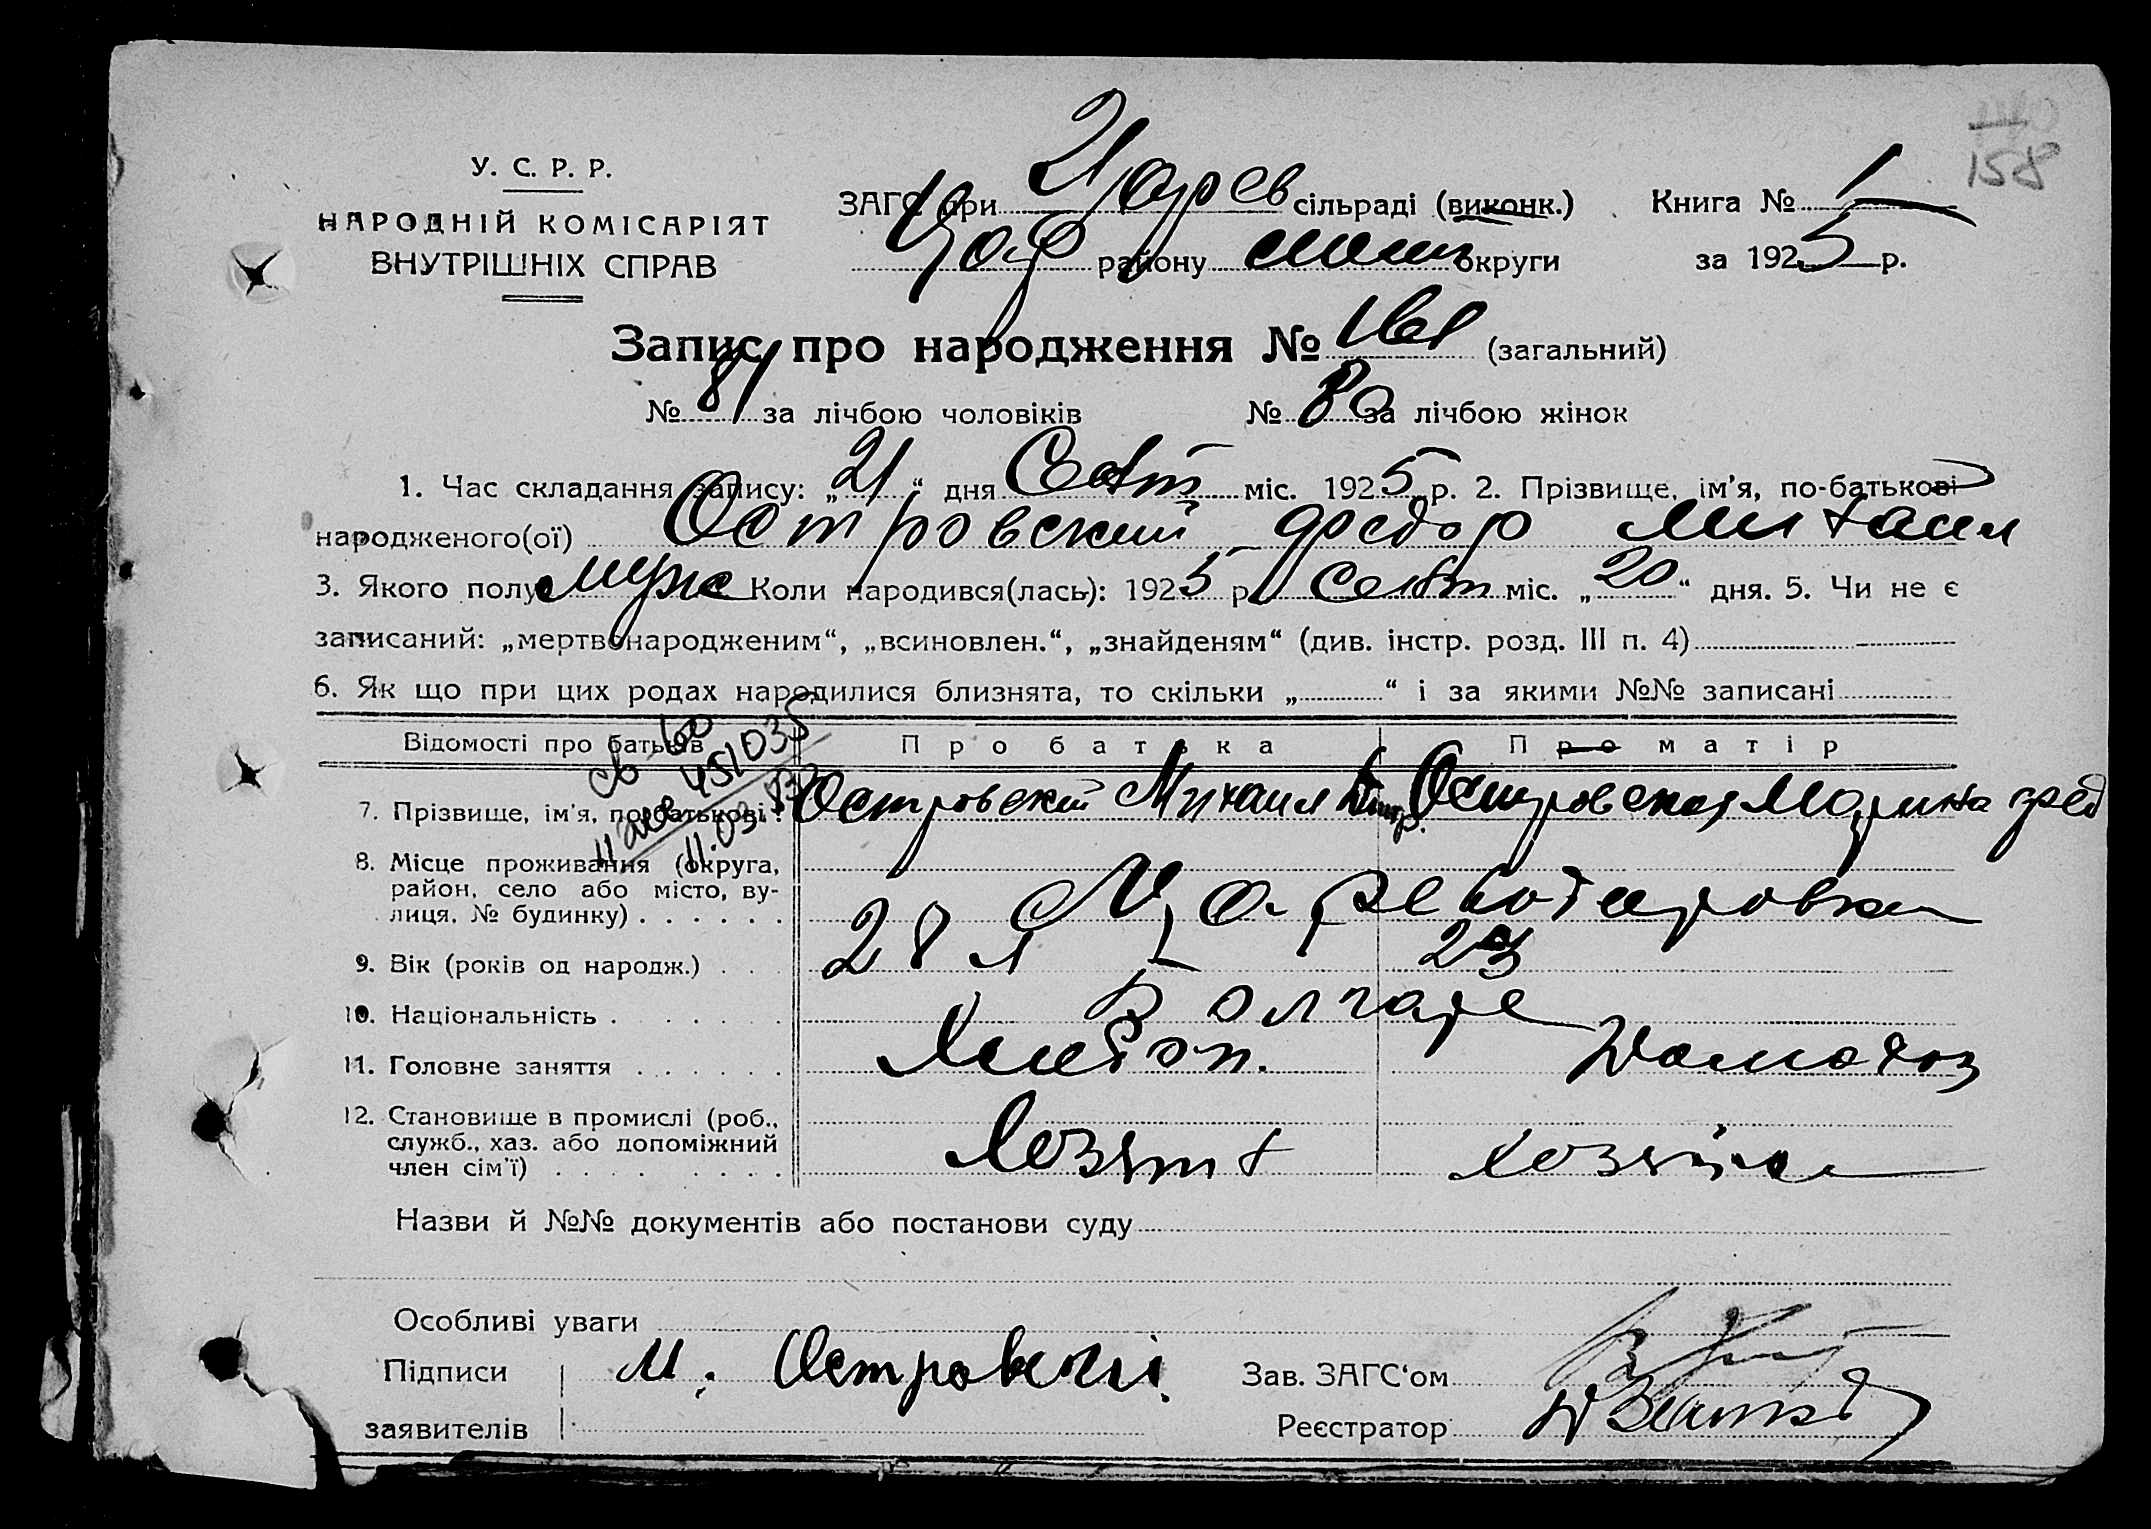 158
У. С. Р. Р.
НАРОДНІЙ КОМІСАРІЯТ
ВНУТРІШНІХ СПРАВ
ЗАГС при Царев сільраді (виконк.)
Книга № 1
району округи
за 1925 р.
Запис про народження № 161 (загальний)
№ 81 за лічбою чоловіків № 80 за лічбою жінок
1. Час складання запису: „21“ дня Сент міс. 1925 р. 2. Прізвище, ім'я, по-батькові
народженого(ої) Островский Федор Михаил
3. Якого полу муж Коли народився(лась): 1925 р. Сент міс. „20“ дня. 5. Чи не є
записаний: „мертвонародженим“, „всиновлен.“, „знайденям“ (див. інстр. розд. III п. 4)
6. Як що при цих родах народилися близнята, то скільки „ “ і за якими №№ записані
Відомості про батьків Про батька Про матір
7. Прізвище, ім'я, по-батькові: Островский Михаил Островская Марина Фед
8. Місце проживання (округа,
район, село або місто, ву-
лиця, № будинку) . . . . . .
9. Вік (років од народж.) . . . 28 л 23
10. Національність . . . . . . Болгаре
11. Головне заняття . . . . . . Хлебоп. Домохоз
12. Становище в промислі (роб.,
служб., хаз. або допоміжний
член сім'ї) . . . . . . . . . Хозяин Хозяйка
Назви й №№ документів або постанови суду
Особливі уваги
Підписи М. Островский Зав. ЗАГС'ом
заявителів Реєстратор